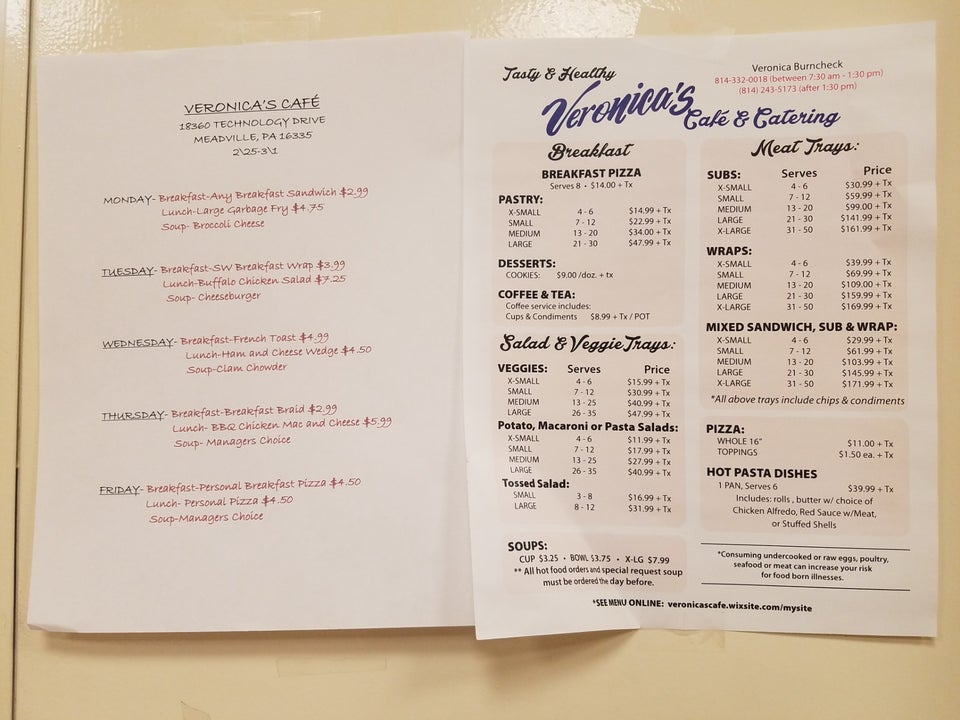 VERONICA'S CAFÉ
18360 TECHNOLOGY DRIVE
MEADVILLE, PA 16335
2\25-3\1
MONDAY- Breakfast-Any Breakfast Sandwich $2.99
Lunch-Large Garbage Fry $4.75
Soup- Broccoli Cheese
TUESDAY- Breakfast-SW Breakfast Wrap $3.99
Lunch-Buffalo Chicken Salad $7.25
Soup- Cheeseburger
WEDNESDAY- Breakfast-French Toast $4.99
Lunch-Ham and Cheese Wedge $4.50
Soup-Clam Chowder
THURSDAY- Breakfast-Breakfast Braid $2.99
Lunch- BBQ Chicken Mac and Cheese $5.99
Soup- Managers Choice
FRIDAY- Breakfast-Personal Breakfast Pizza $4.50
Lunch- Personal Pizza $4.50
Soup-Managers Choice
Tasty & Healthy
Veronica's
Café & Catering
Veronica Burncheck
814-332-0018 (between 7:30 am - 1:30 pm)
(814) 243-5173 (after 1:30 pm)
Breakfast
BREAKFAST PIZZA
Serves 8 • $14.00 + Tx
PASTRY:
X-SMALL 4 - 6 $14.99 + Tx
SMALL 7 - 12 $22.99 + Tx
MEDIUM 13 - 20 $34.00 + Tx
LARGE 21 - 30 $47.99 + Tx
DESSERTS:
COOKIES: $9.00 /doz. + tx
COFFEE & TEA:
Coffee service includes:
Cups & Condiments $8.99 + Tx / POT
Salad & Veggie Trays:
VEGGIES: Serves Price
X-SMALL 4 - 6 $15.99 + Tx
SMALL 7 - 12 $30.99 + Tx
MEDIUM 13 - 25 $40.99 + Tx
LARGE 26 - 35 $47.99 + Tx
Potato, Macaroni or Pasta Salads:
X-SMALL 4 - 6 $11.99 + Tx
SMALL 7 - 12 $17.99 + Tx
MEDIUM 13 - 25 $27.99 + Tx
LARGE 26 - 35 $40.99 + Tx
Tossed Salad:
SMALL 3 - 8 $16.99 + Tx
LARGE 8 - 12 $31.99 + Tx
SOUPS:
CUP $3.25 • BOWL $3.75 • X-LG $7.99
** All hot food orders and special request soup
must be ordered the day before.
Meat Trays:
SUBS: Serves Price
X-SMALL 4 - 6 $30.99 + Tx
SMALL 7 - 12 $59.99 + Tx
MEDIUM 13 - 20 $99.00 + Tx
LARGE 21 - 30 $141.99 + Tx
X-LARGE 31 - 50 $161.99 + Tx
WRAPS:
X-SMALL 4 - 6 $39.99 + Tx
SMALL 7 - 12 $69.99 + Tx
MEDIUM 13 - 20 $109.00 + Tx
LARGE 21 - 30 $159.99 + Tx
X-LARGE 31 - 50 $169.99 + Tx
MIXED SANDWICH, SUB & WRAP:
X-SMALL 4 - 6 $29.99 + Tx
SMALL 7 - 12 $61.99 + Tx
MEDIUM 13 - 20 $103.99 + Tx
LARGE 21 - 30 $145.99 + Tx
X-LARGE 31 - 50 $171.99 + Tx
*All above trays include chips & condiments
PIZZA:
WHOLE 16" $11.00 + Tx
TOPPINGS $1.50 ea. + Tx
HOT PASTA DISHES
1 PAN, Serves 6 $39.99 + Tx
Includes: rolls , butter w/ choice of
Chicken Alfredo, Red Sauce w/Meat,
or Stuffed Shells
*Consuming undercooked or raw eggs, poultry,
seafood or meat can increase your risk
for food born illnesses.
*SEE MENU ONLINE: veronicascafe.wixsite.com/mysite